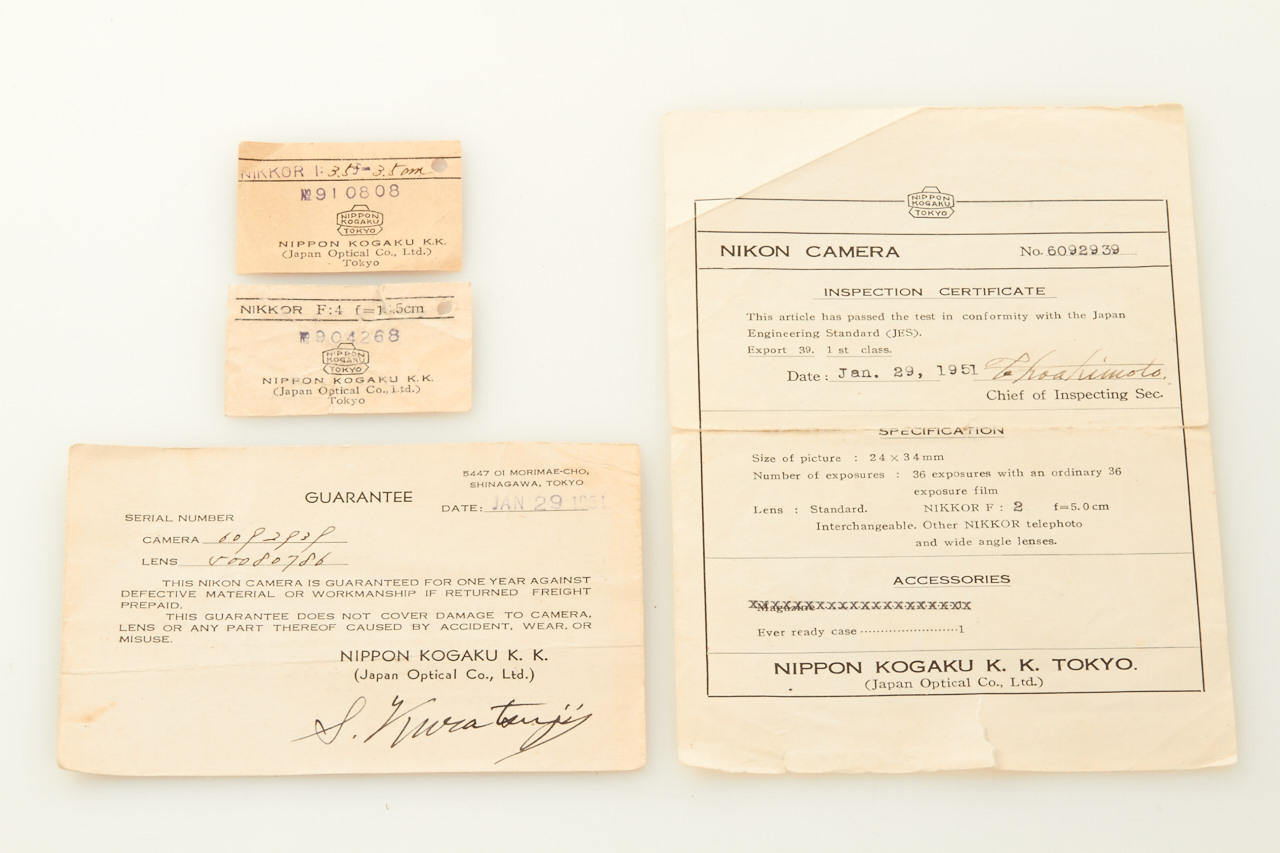 NIKKOR F:3.5 f=3.5cm
№910808
NIPPON
KOGAKU
TOKYO
NIPPON KOGAKU K.K.
(Japan Optical Co., Ltd.)
Tokyo
NIKKOR F:4 f=13.5cm
№904268
NIPPON
KOGAKU
TOKYO
NIPPON KOGAKU K.K.
(Japan Optical Co., Ltd.)
Tokyo
5447 OI MORIMAE-CHO,
SHINAGAWA, TOKYO
GUARANTEE
DATE: JAN 29 1951
SERIAL NUMBER
CAMERA 6092939
LENS 50080786
THIS NIKON CAMERA IS GUARANTEED FOR ONE YEAR AGAINST
DEFECTIVE MATERIAL OR WORKMANSHIP IF RETURNED FREIGHT
PREPAID.
THIS GUARANTEE DOES NOT COVER DAMAGE TO CAMERA,
LENS OR ANY PART THEREOF CAUSED BY ACCIDENT, WEAR, OR
MISUSE.
NIPPON KOGAKU K. K.
(Japan Optical Co., Ltd.)
S. Kuratsuji
NIPPON
KOGAKU
TOKYO
NIKON CAMERA No. 6092939
INSPECTION CERTIFICATE
This article has passed the test in conformity with the Japan
Engineering Standard (JES).
Export 39. 1 st class.
Date: Jan. 29, 1951
Chief of Inspecting Sec.
SPECIFICATION
Size of picture : 24×34mm
Number of exposures : 36 exposures with an ordinary 36
exposure film
Lens : Standard. NIKKOR F : 2 f=5.0cm
Interchangeable. Other NIKKOR telephoto
and wide angle lenses.
ACCESSORIES
Magazine
Ever ready case ························1
NIPPON KOGAKU K. K. TOKYO.
(Japan Optical Co., Ltd.)